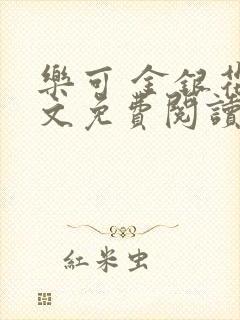 樂可 金銀花
文免費閱讀
紅米虫